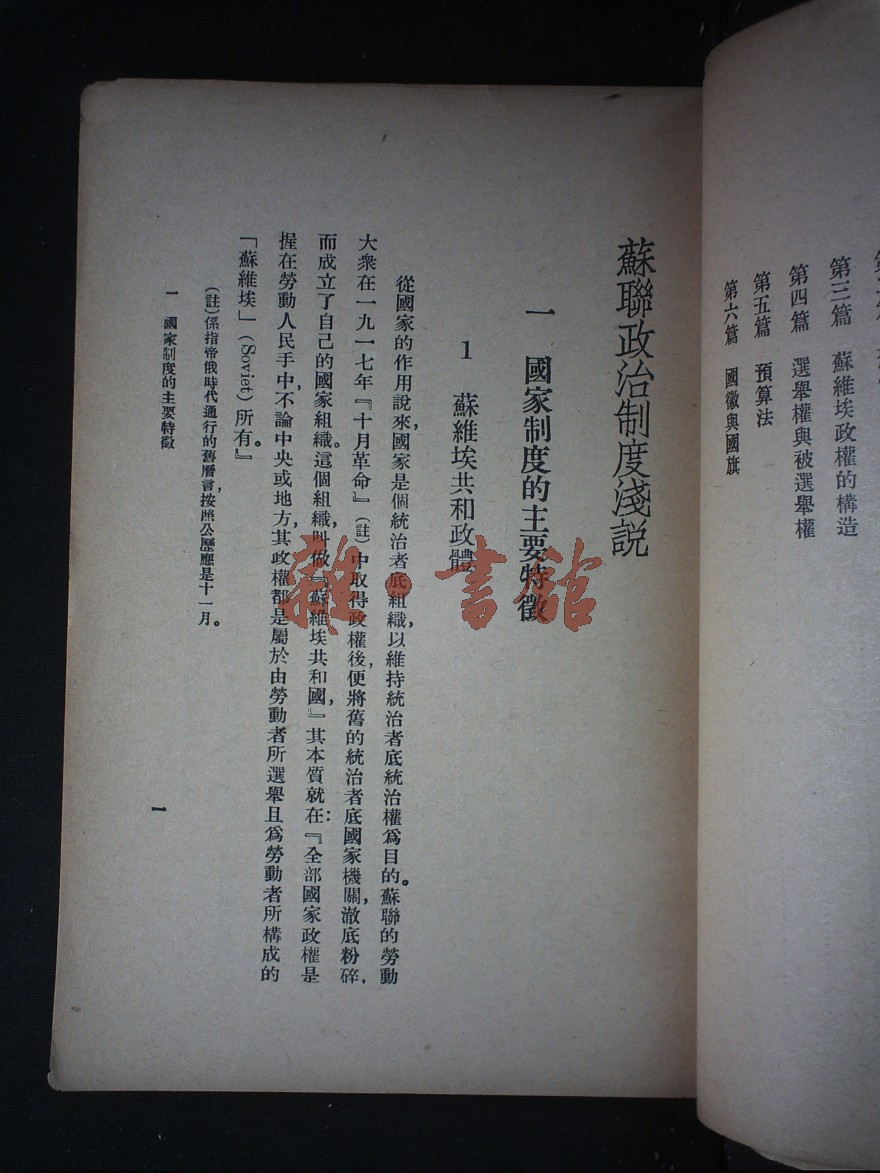 第三篇　蘇維埃政權的構造
第四篇　選舉權與被選舉權
第五篇　預算法
第六篇　國徽與國旗
蘇聯政治制度淺説
一　國家制度的主要特徵
1　蘇維埃共和政體
從國家的作用說來,國家是個統治者底組織,以維持統治者底統治權爲目的。蘇聯的勞動
大衆在一九一七年『十月革命』(註)中取得政權後,便將舊的統治者底國家機關,澈底粉碎,
而成立了自己的國家組織。這個組織,叫做『蘇維埃共和國,』其本質就在:『全部國家政權是
握在勞動人民手中,不論中央或地方,其政權都是屬於由勞動者所選舉且爲勞動者所構成的
「蘇維埃」(Soviet)所有。』
(註)係指帝俄時代通行的舊曆言,按照公歷應是十一月。
一　國家制度的主要特徵
一
雜·書舘